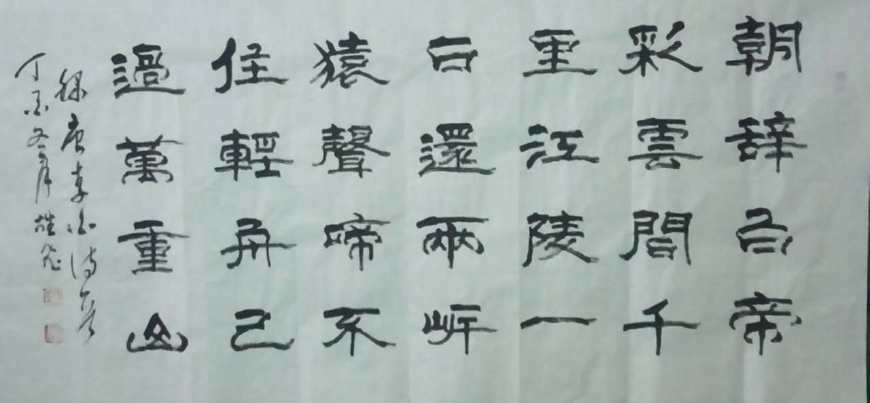 朝辞白帝
彩雲間千
里江陵一
日還兩岸
猿聲啼不
住輕舟已
過萬重山
録唐李白诗一首
丁酉冬月雄